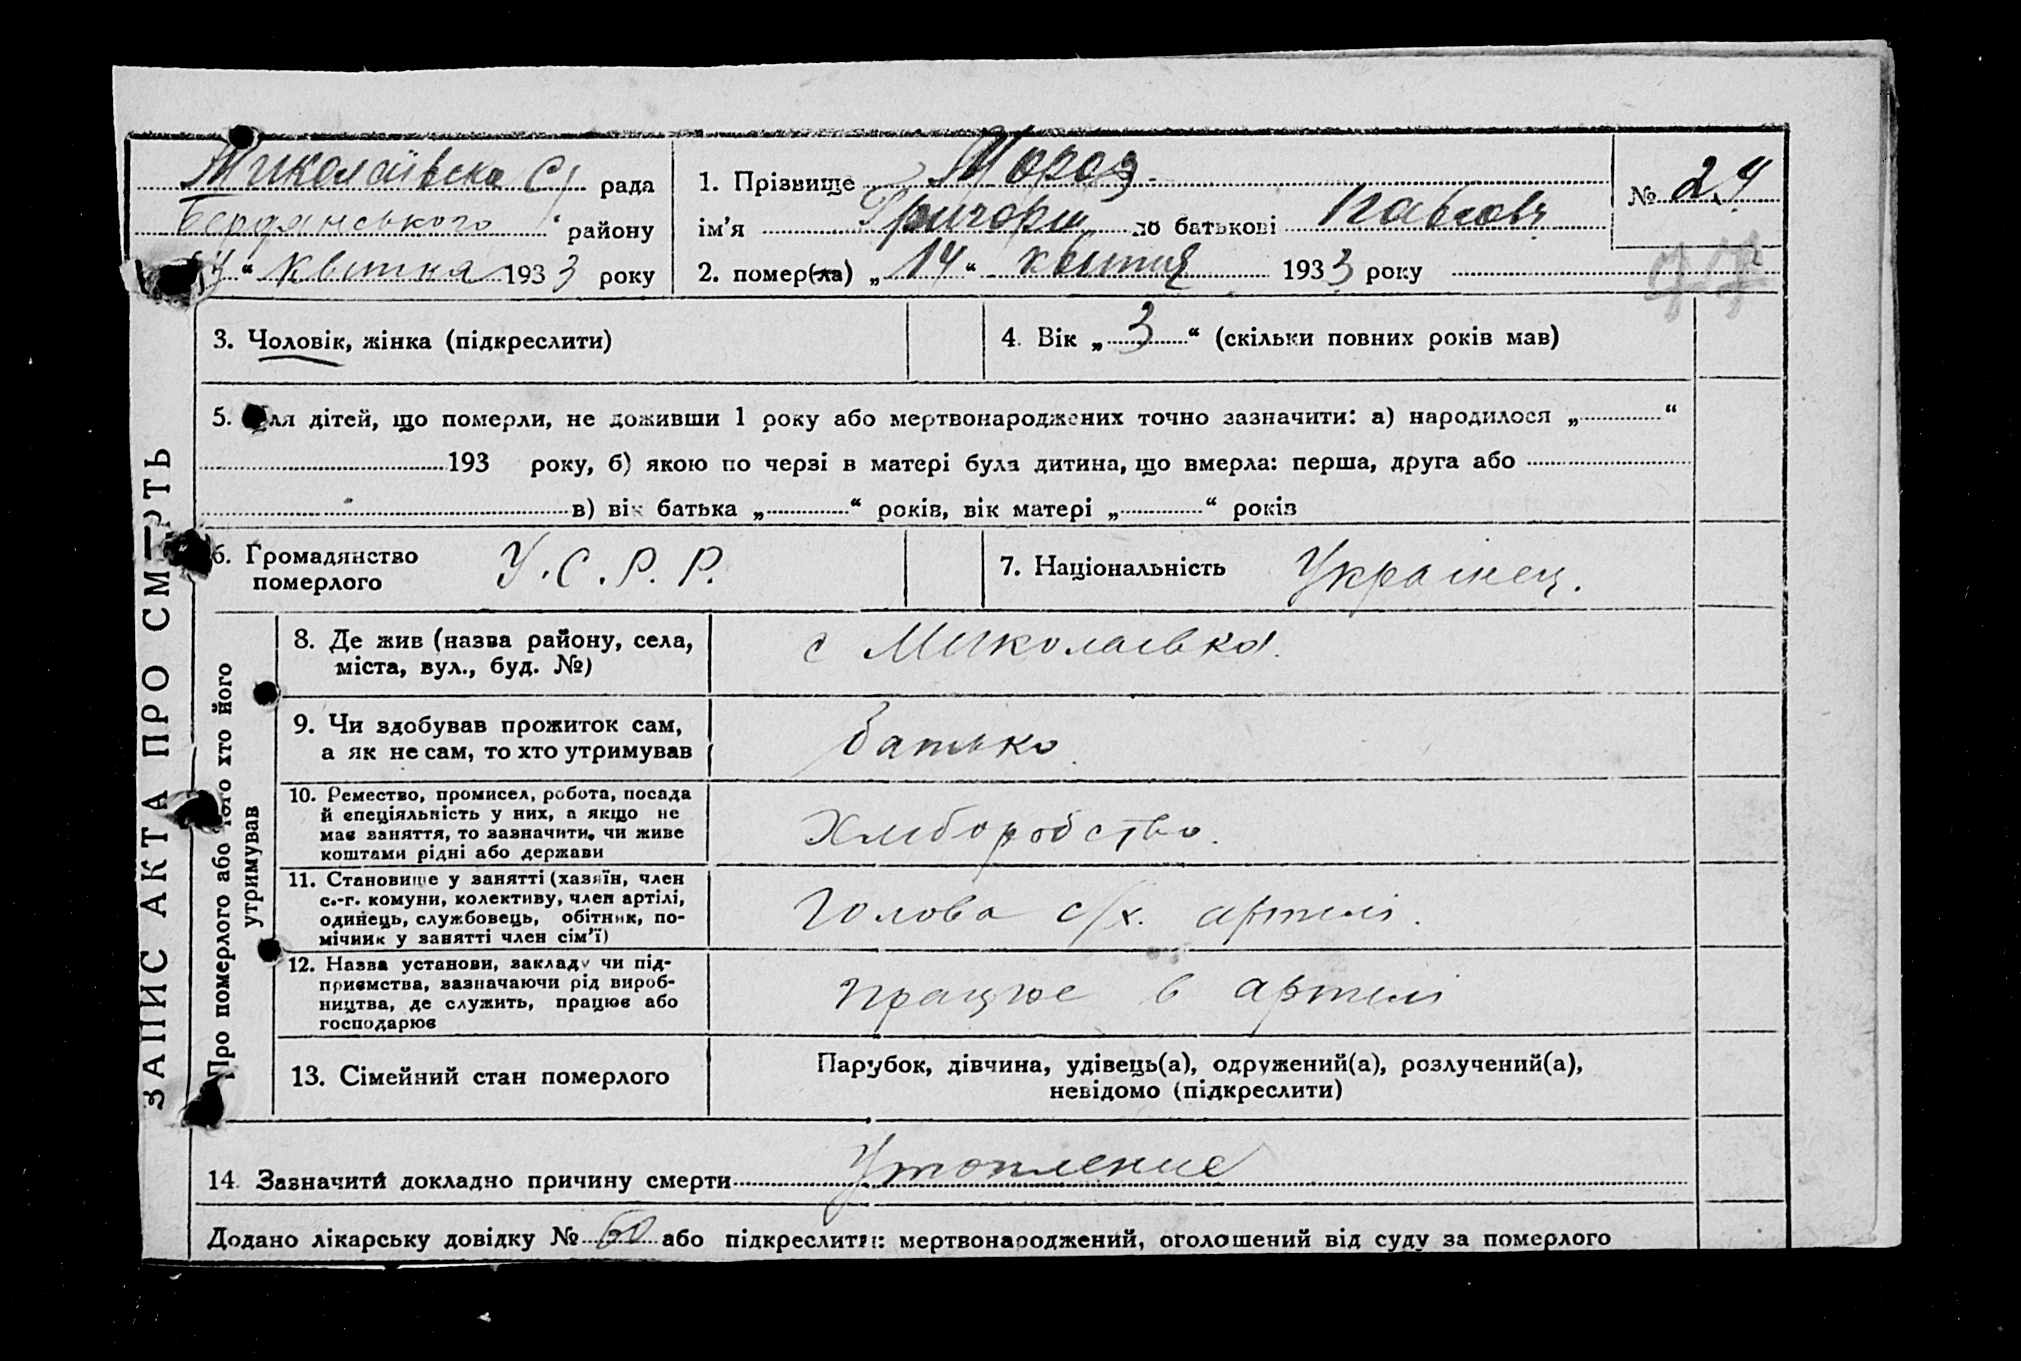 ЗАПИС АКТА ПРО СМЕРТЬ
Миколаївська С/ рада
Бердянського району
“ квітня 1933 року
1. Прізвище Мороз
ім’я Григорій по батькові Павлов
2. помер(ла) „ 14 “ квітня 1933 року
№ 24
3. Чоловік, жінка (підкреслити)
4. Вік „ 3 “ (скільки повних років мав)
5. Для дітей, що померли, не доживши 1 року або мертвонароджених точно зазначити: а) народилося „ “
193 року, б) якою по черзі в матері була дитина, що вмерла: перша, друга або
в) вік батька „ “ років, вік матері „ “ років
6. Громадянство
померлого У.С.Р.Р.
7. Національність Українец.
Про померлого або того хто його
утримував
8. Де жив (назва району, села,
міста, вул., буд. №)
с Миколаівка.
9. Чи здобував прожиток сам,
а як не сам, то хто утримував
батько
10. Ремество, промисел, робота, посада
й спеціяльність у них, а якщо не
має заняття, то зазначити, чи живе
коштами рідні або держави
Хліборобство.
11. Становище у занятті (хазяїн, член
с.-г. комуни, колективу, член артілі,
одинець, службовець, обітник, по-
мічник у занятті член сім’ї)
Голова с/х. артілі.
12. Назва установи, закладу чи під-
приємства, зазначаючи рід вироб-
ництва, де служить, працює або
господарює
працює в артілі
13. Сімейний стан померлого
Парубок, дівчина, удівець(а), одружений(а), розлучений(а),
невідомо (підкреслити)
14. Зазначити докладно причину смерти Утопление
Додано лікарську довідку № 60 або підкреслити: мертвонароджений, оголошений від суду за померлого